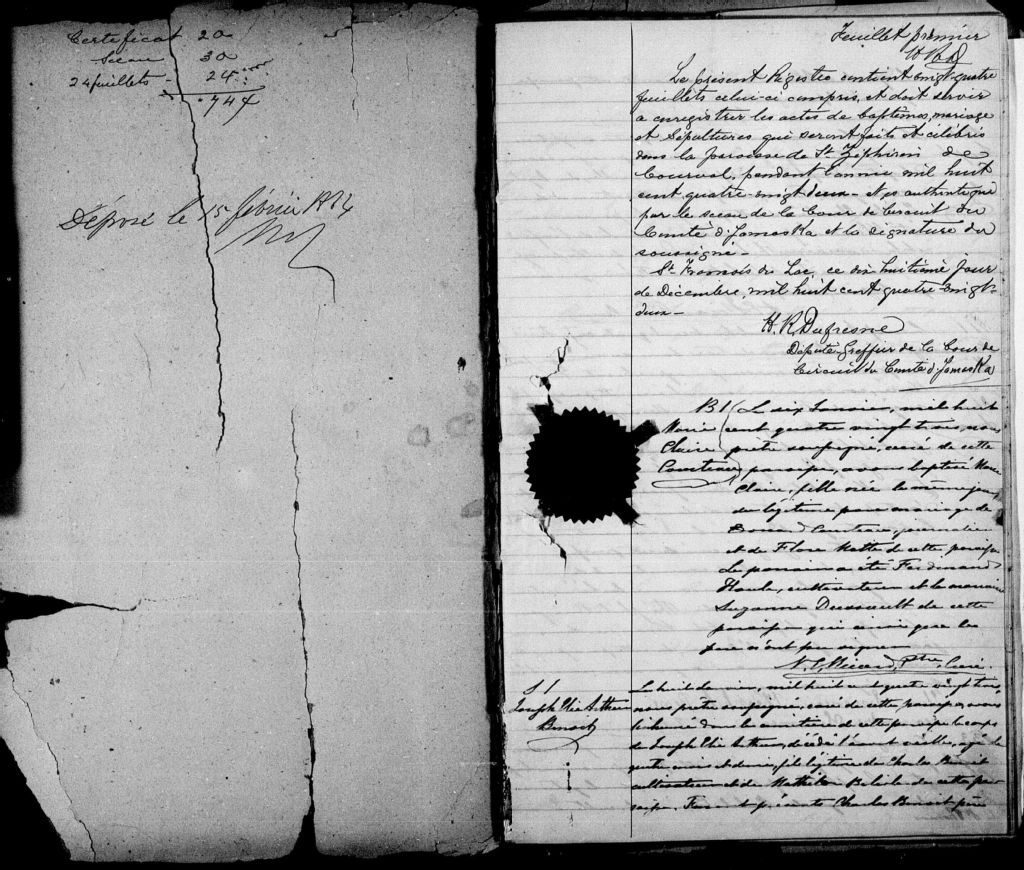 Certificat 20
Sceau 30
24 feuillets - 24
.74
Déposé le 15 février 1884
Feuillet premier
H R D
Le présent Registre contient vingt quatre
feuillets celui-ci compris, et doit servir
a enregistrer les actes de baptêmes, mariage
et Sépultures qui seront faits et célébrés
dans la paroisse de St Zéphirin de
Courval, pendant l'année mil huit
cent quatre vingt deux - et authentiqué
par le sceau de la Cour de Circuit du
Comté d'Yamaska et la signature du
soussigné -
St François du Lac, ce dix huitième jour
de Décembre, mil huit cent quatre-vingt-
deux -
H. R. Dufresne
Député-Greffier de la Cour de
Circuit du Comté d'Yamaska
B 1 Le six Janvier, mil huit
Marie cent quatre vingt trois, nous
Claire prêtre soussigné, curé de cette
paroisse, avons baptisé Marie
Claire, fille née le même jour,
du légitime mariage de
journalier
et de Flore de cette paroisse
Le parrain a été Ferdinand
Houle, cultivateur et la marraine
Suzanne Dussault de cette
paroisse qui ainsi que le
père n'ont pu signer
Ptre, Curé
S 1
Joseph Elie Arthur
Benoit
Le huit Janvier, mil huit cent quatre vingt trois,
nous prêtre soussigné, curé de cette paroisse, avons
inhumé dans le cimetière de cette paroisse le corps
de Joseph Elie Arthur, décédé l'avant veille, agé de
quatre ans et demi, fils légitime de Charles Benoit
cultivateur et de Mathilde Belisle de cette pa-
roisse, Furent présents Charles Benoit père